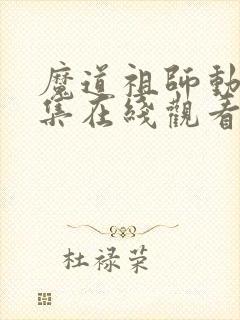 魔道祖師動
集在綫觀看
杜禄荣